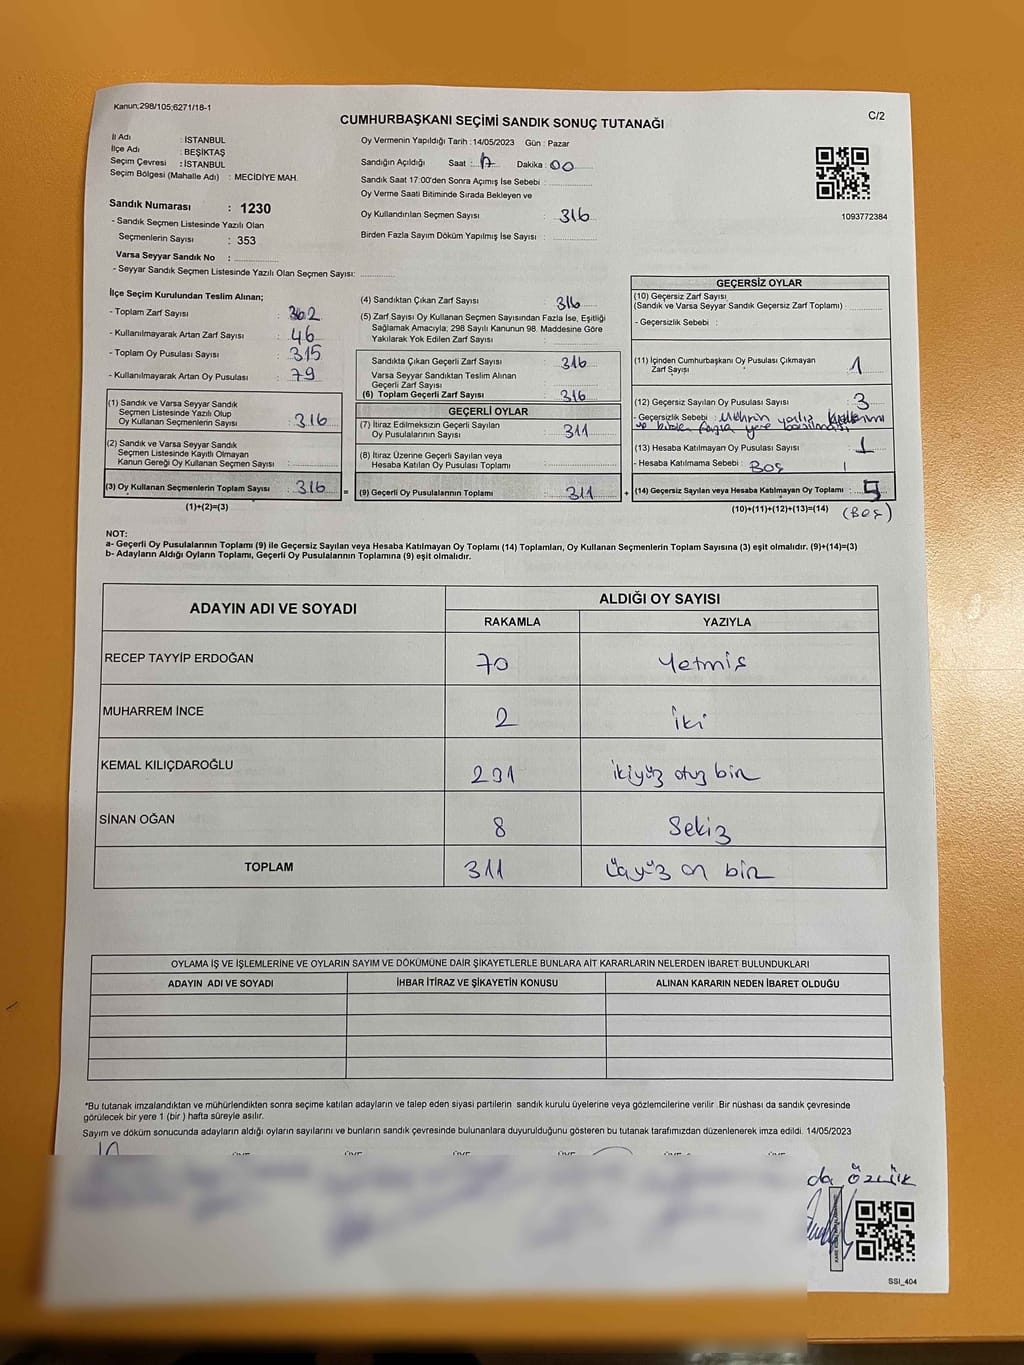 Kanun;298/105;6271/18-1
C/2
CUMHURBAŞKANI SEÇİMİ SANDIK SONUÇ TUTANAĞI
İl Adı : İSTANBUL
İlçe Adı : BEŞİKTAŞ
Seçim Çevresi : İSTANBUL
Seçim Bölgesi (Mahalle Adı) : MECİDİYE MAH.
Sandık Numarası : 1230
- Sandık Seçmen Listesinde Yazılı Olan
Seçmenlerin Sayısı : 353
Varsa Seyyar Sandık No :
- Seyyar Sandık Seçmen Listesinde Yazılı Olan Seçmen Sayısı:
Oy Vermenin Yapıldığı Tarih :14/05/2023 Gün : Pazar
Sandığın Açıldığı Saat : 17 Dakika : 00
Sandık Saat 17:00'den Sonra Açımış İse Sebebi :
Oy Verme Saati Bitiminde Sırada Bekleyen ve
Oy Kullandırılan Seçmen Sayısı : 316
Birden Fazla Sayım Döküm Yapılmış İse Sayısı :
1093772384
İlçe Seçim Kurulundan Teslim Alınan;
- Toplam Zarf Sayısı : 362
- Kullanılmayarak Artan Zarf Sayısı : 46
- Toplam Oy Pusulası Sayısı : 315
- Kullanılmayarak Artan Oy Pusulası : 79
(1) Sandık ve Varsa Seyyar Sandık
Seçmen Listesinde Yazılı Olup
Oy Kullanan Seçmenlerin Sayısı : 316
(2) Sandık ve Varsa Seyyar Sandık
Seçmen Listesinde Kayıtlı Olmayan
Kanun Gereği Oy Kullanan Seçmen Sayısı :
(3) Oy Kullanan Seçmenlerin Toplam Sayısı : 316 =
(1)+(2)=(3)
(4) Sandıktan Çıkan Zarf Sayısı : 316
(5) Zarf Sayısı Oy Kullanan Seçmen Sayısından Fazla İse, Eşitliği
Sağlamak Amacıyla; 298 Sayılı Kanunun 98. Maddesine Göre
Yakılarak Yok Edilen Zarf Sayısı :
Sandıkta Çıkan Geçerli Zarf Sayısı : 316
Varsa Seyyar Sandıktan Teslim Alınan
Geçerli Zarf Sayısı :
(6) Toplam Geçerli Zarf Sayısı : 316
GEÇERLİ OYLAR
(7) İtiraz Edilmeksizin Geçerli Sayılan
Oy Pusulalarının Sayısı : 311
(8) İtiraz Üzerine Geçerli Sayılan veya
Hesaba Katılan Oy Pusulası Toplamı :
(9) Geçerli Oy Pusulalarının Toplamı : 311 +
GEÇERSİZ OYLAR
(10) Geçersiz Zarf Sayısı
(Sandık ve Varsa Seyyar Sandık Geçersiz Zarf Toplamı) :
- Geçersizlik Sebebi :
(11) İçinden Cumhurbaşkanı Oy Pusulası Çıkmayan
Zarf Sayısı : 1
(12) Geçersiz Sayılan Oy Pusulası Sayısı : 3
- Geçersizlik Sebebi : Mührün yanlış kullanımı
ve birden fazla yere basılması
(13) Hesaba Katılmayan Oy Pusulası Sayısı : 1
- Hesaba Katılmama Sebebi : BOŞ
(14) Geçersiz Sayılan veya Hesaba Katılmayan Oy Toplamı : 5
(10)+(11)+(12)+(13)=(14) (BOŞ)
NOT:
a- Geçerli Oy Pusulalarının Toplamı (9) ile Geçersiz Sayılan veya Hesaba Katılmayan Oy Toplamı (14) Toplamları, Oy Kullanan Seçmenlerin Toplam Sayısına (3) eşit olmalıdır. (9)+(14)=(3)
b- Adayların Aldığı Oyların Toplamı, Geçerli Oy Pusulalarının Toplamına (9) eşit olmalıdır.
ADAYIN ADI VE SOYADI
ALDIĞI OY SAYISI
RAKAMLA YAZIYLA
RECEP TAYYİP ERDOĞAN 70 Yetmiş
MUHARREM İNCE 2 iki
KEMAL KILIÇDAROĞLU 231 ikiyüz otuz bir
SİNAN OĞAN 8 Sekiz
TOPLAM 311 üçyüz on bir
OYLAMA İŞ VE İŞLEMLERİNE VE OYLARIN SAYIM VE DÖKÜMÜNE DAİR ŞİKAYETLERLE BUNLARA AİT KARARLARIN NELERDEN İBARET BULUNDUKLARI
ADAYIN ADI VE SOYADI İHBAR İTİRAZ VE ŞİKAYETİN KONUSU ALINAN KARARIN NEDEN İBARET OLDUĞU
*Bu tutanak imzalandıktan ve mühürlendikten sonra seçime katılan adayların ve talep eden siyasi partilerin sandık kurulu üyelerine veya gözlemcilerine verilir .Bir nüshası da sandık çevresinde
görülecek bir yere 1 (bir ) hafta süreyle asılır.
Sayım ve döküm sonucunda adayların aldığı oyların sayılarını ve bunların sandık çevresinde bulunanlara duyurulduğunu gösteren bu tutanak tarafımızdan düzenlenerek imza edildi. 14/05/2023
SSI_404